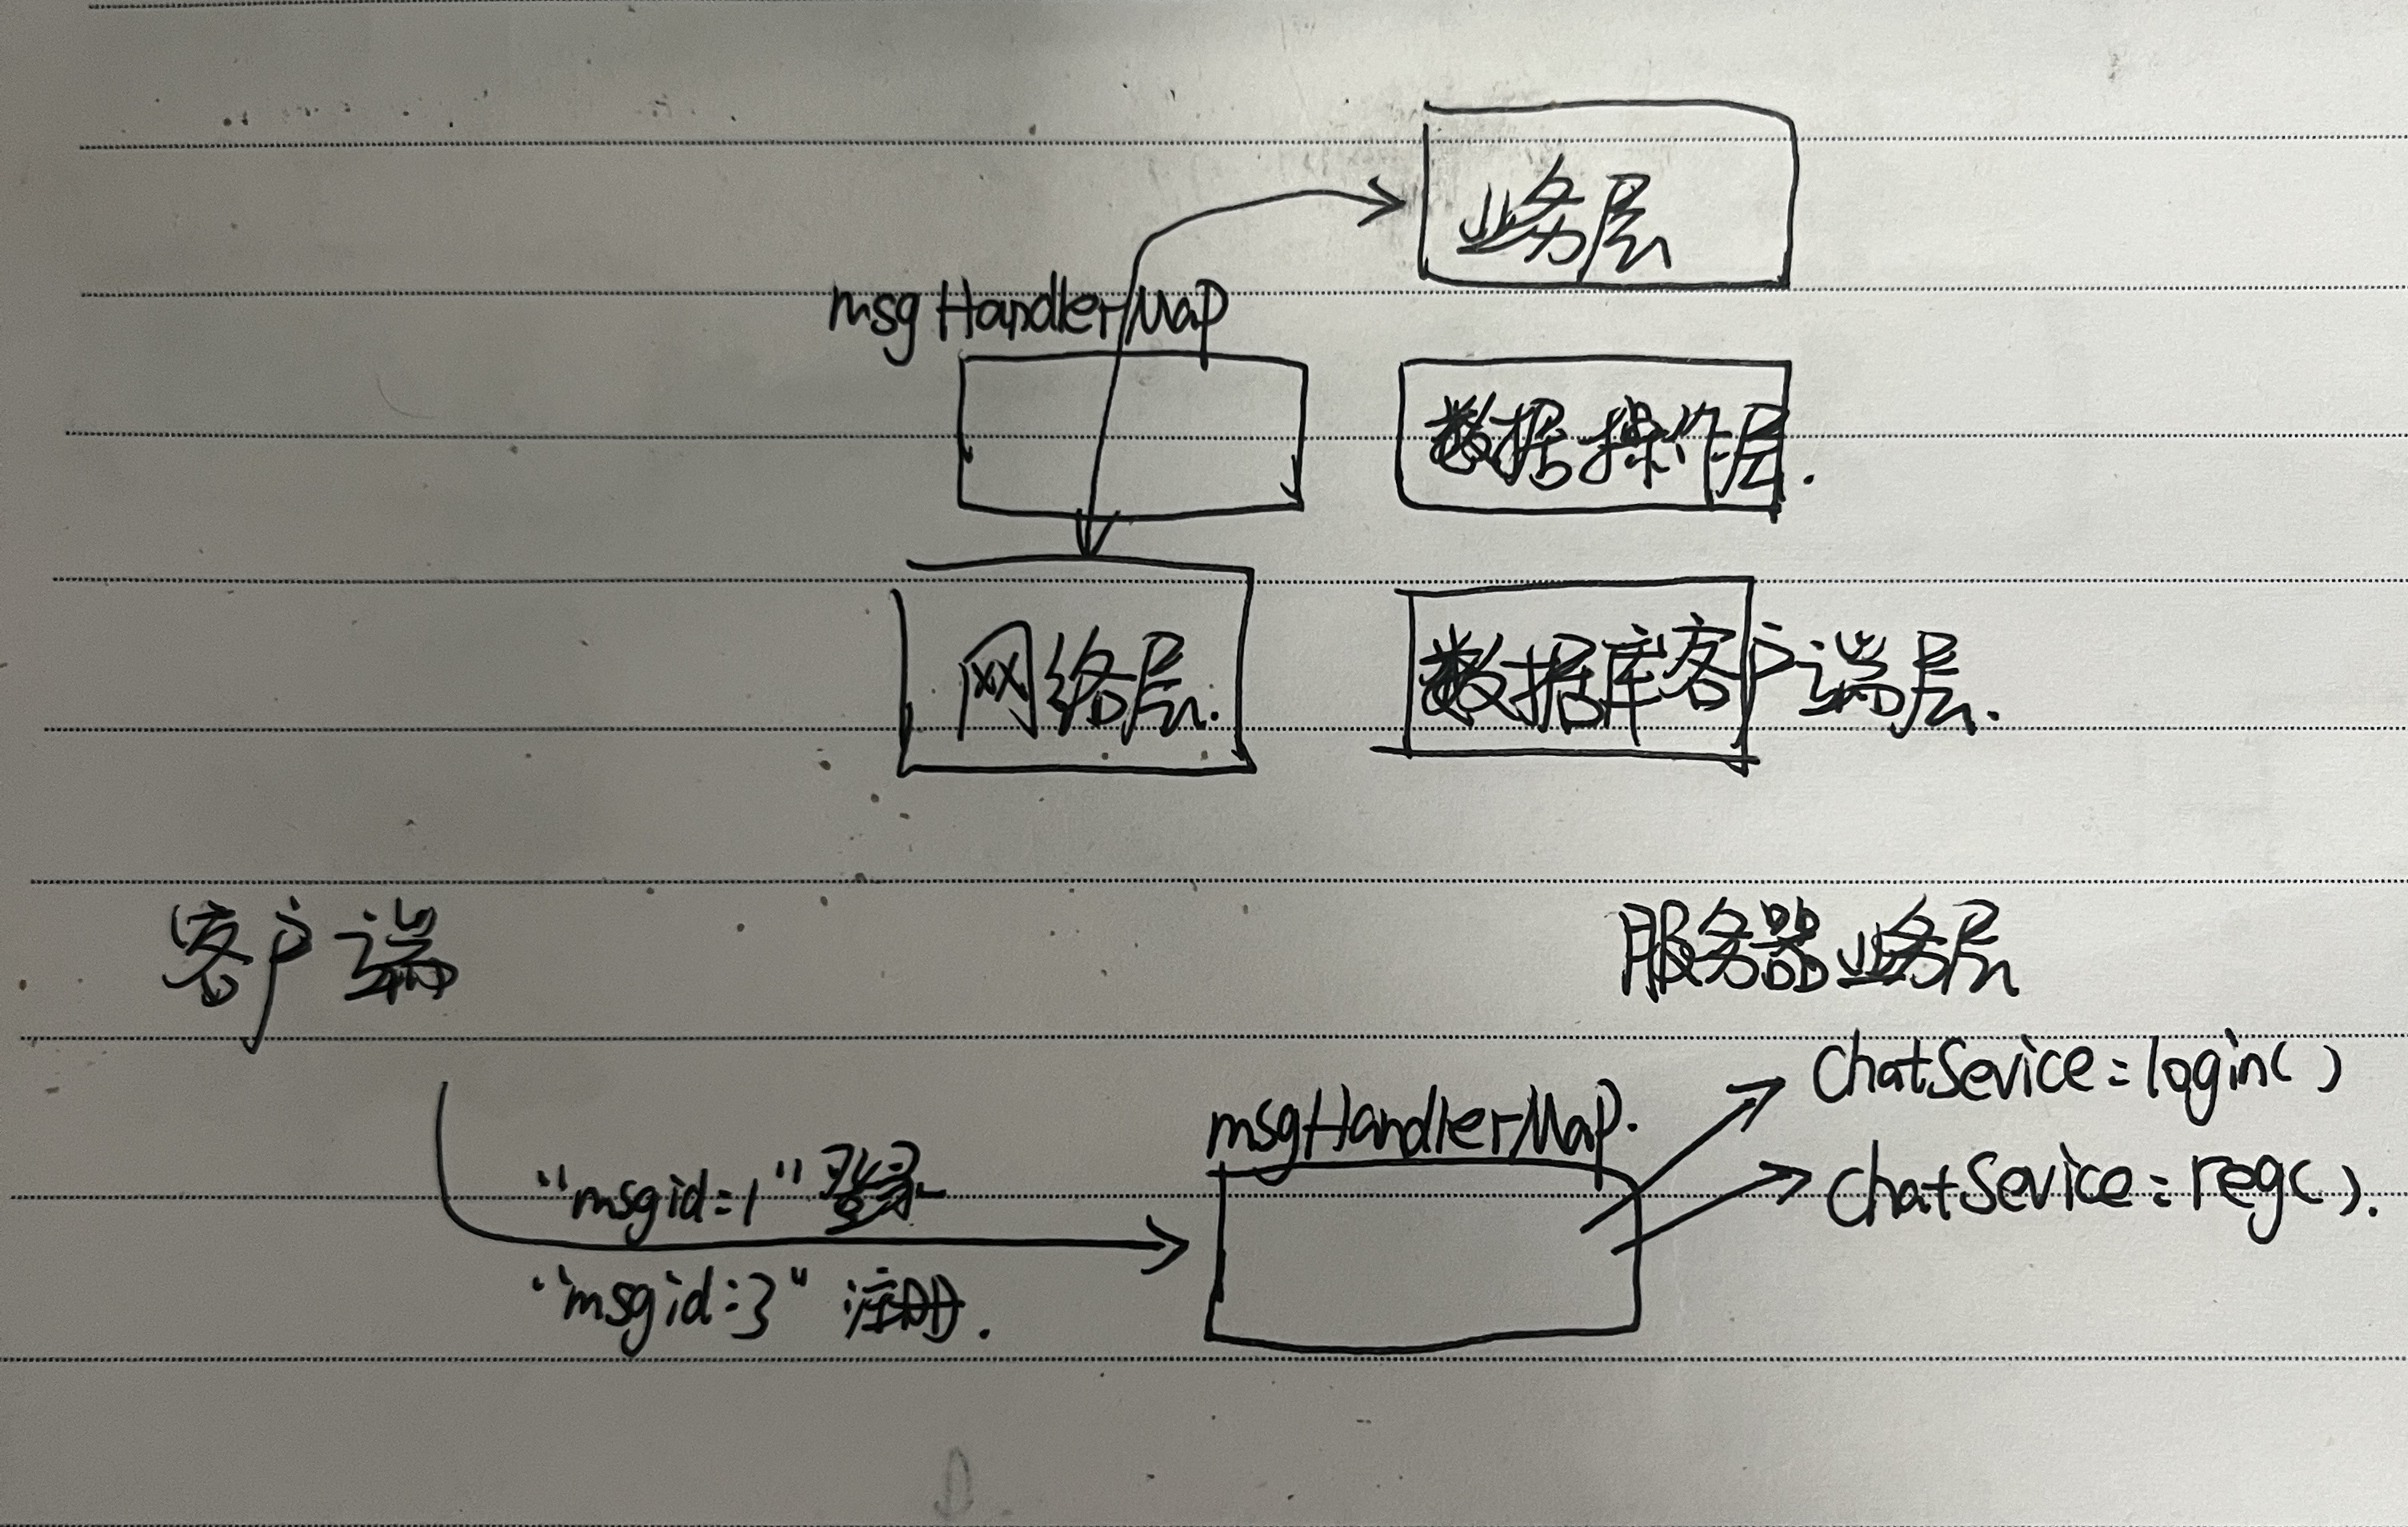 业务层
msgHandlerMap
数据操作层.
网络层.
数据库客户端层.
客户端
服务器业务层
chatSevice:login()
msgHandlerMap.
"msgid=1"登录
chatSevice:reg().
"msgid:3"注册.